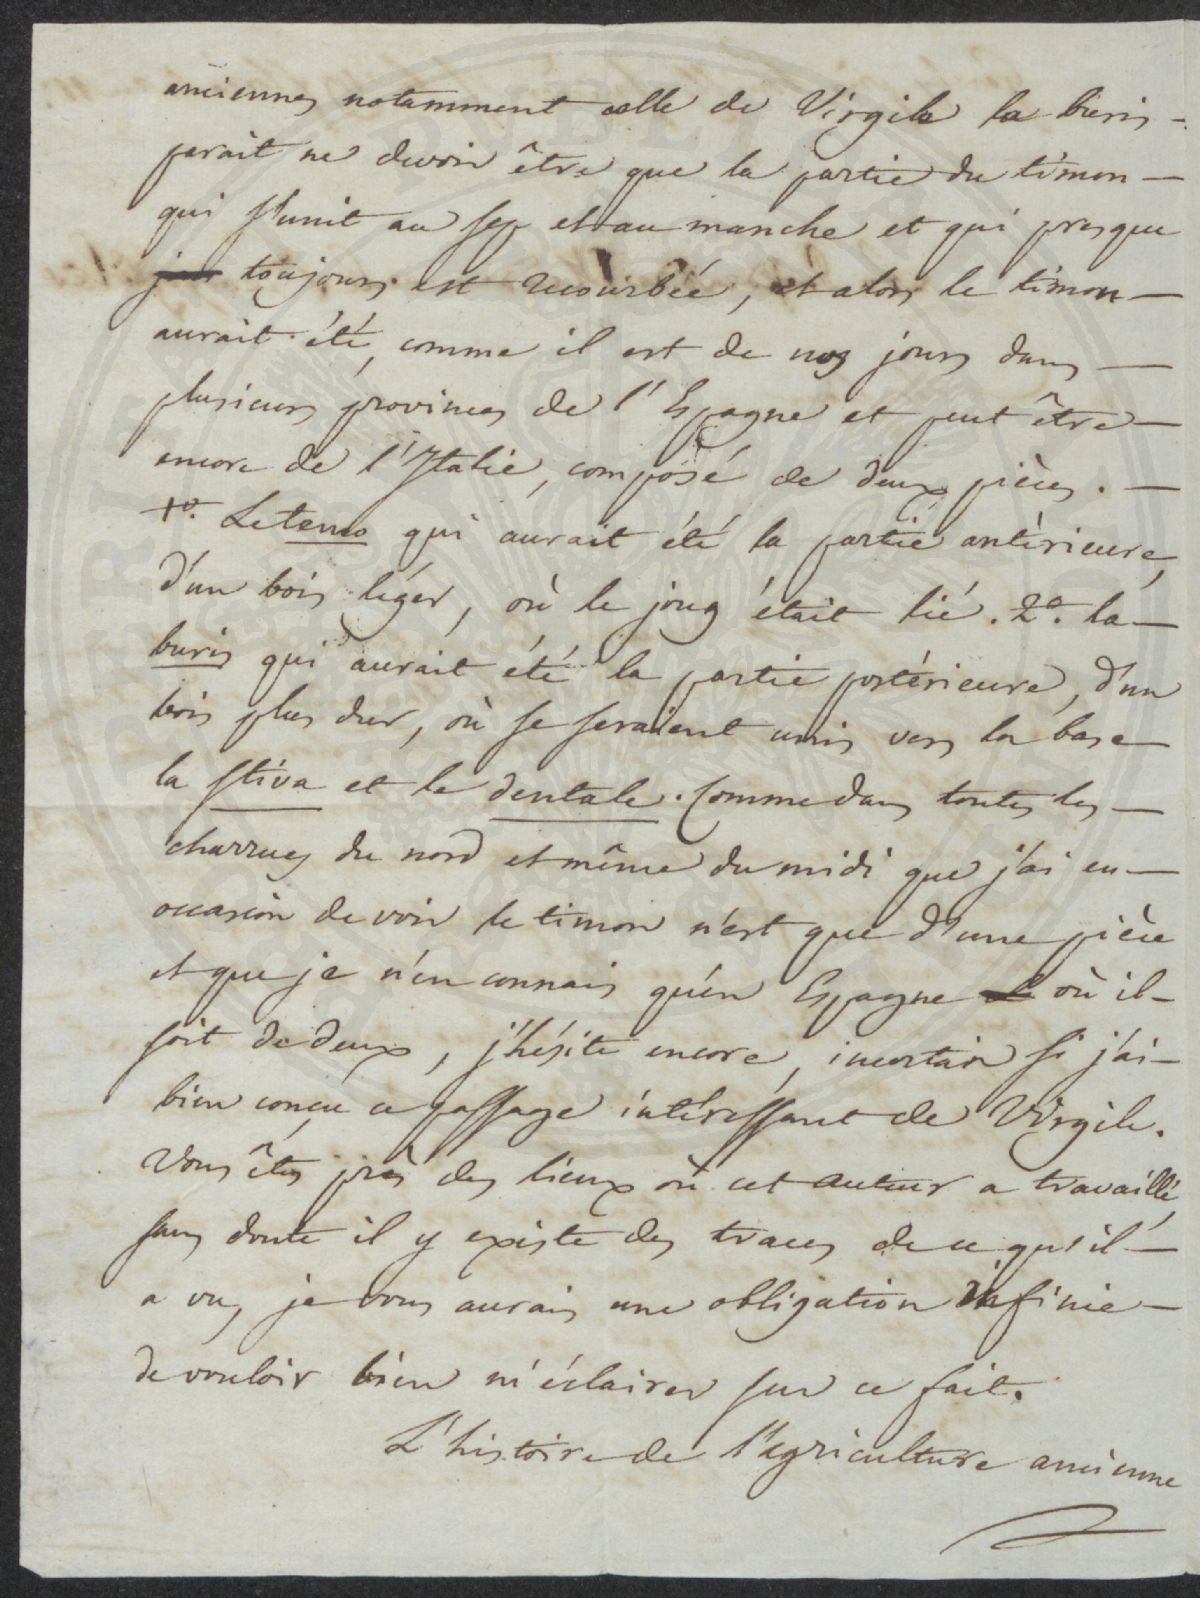 anciennes notamment celle de Virgile la buris –
parait ne devoir être que la partie du timon –
qui s'unit au sep et au manche et qui presque
toujours est recourbée, et alors le timon –
aurait été comme il est de nos jours dans –
plusieurs provinces de l'Espagne et peut être –
encore de l'Italie, composé de deux pièces. –
1º. Le temo qui aurait été la partie antérieure,
d'un bois léger, où le joug était lié. 2º. la –
buris qui aurait été la partie postérieure, d'un
bois plus dur, où se seraient unis vers la base
la stiva et le dentale. Comme dans toutes les –
charrues du nord et même du midi que j'ai eu –
occasion de voir le timon n'est que d'une pièce
et que je n'en connais qu'en Espagne où il –
soit de deux, j'hésite encore, incertain si j'ai –
bien conçu ce passage intéressant de Virgile.
Vous êtes près des lieux où cet auteur a travaillé,
sans doute il y existe des traces de ce qu'il –
a vu, je vous aurais une obligation infinie –
de vouloir bien m'éclairer sur ce fait.
L'histoire de l'agriculture ancienne